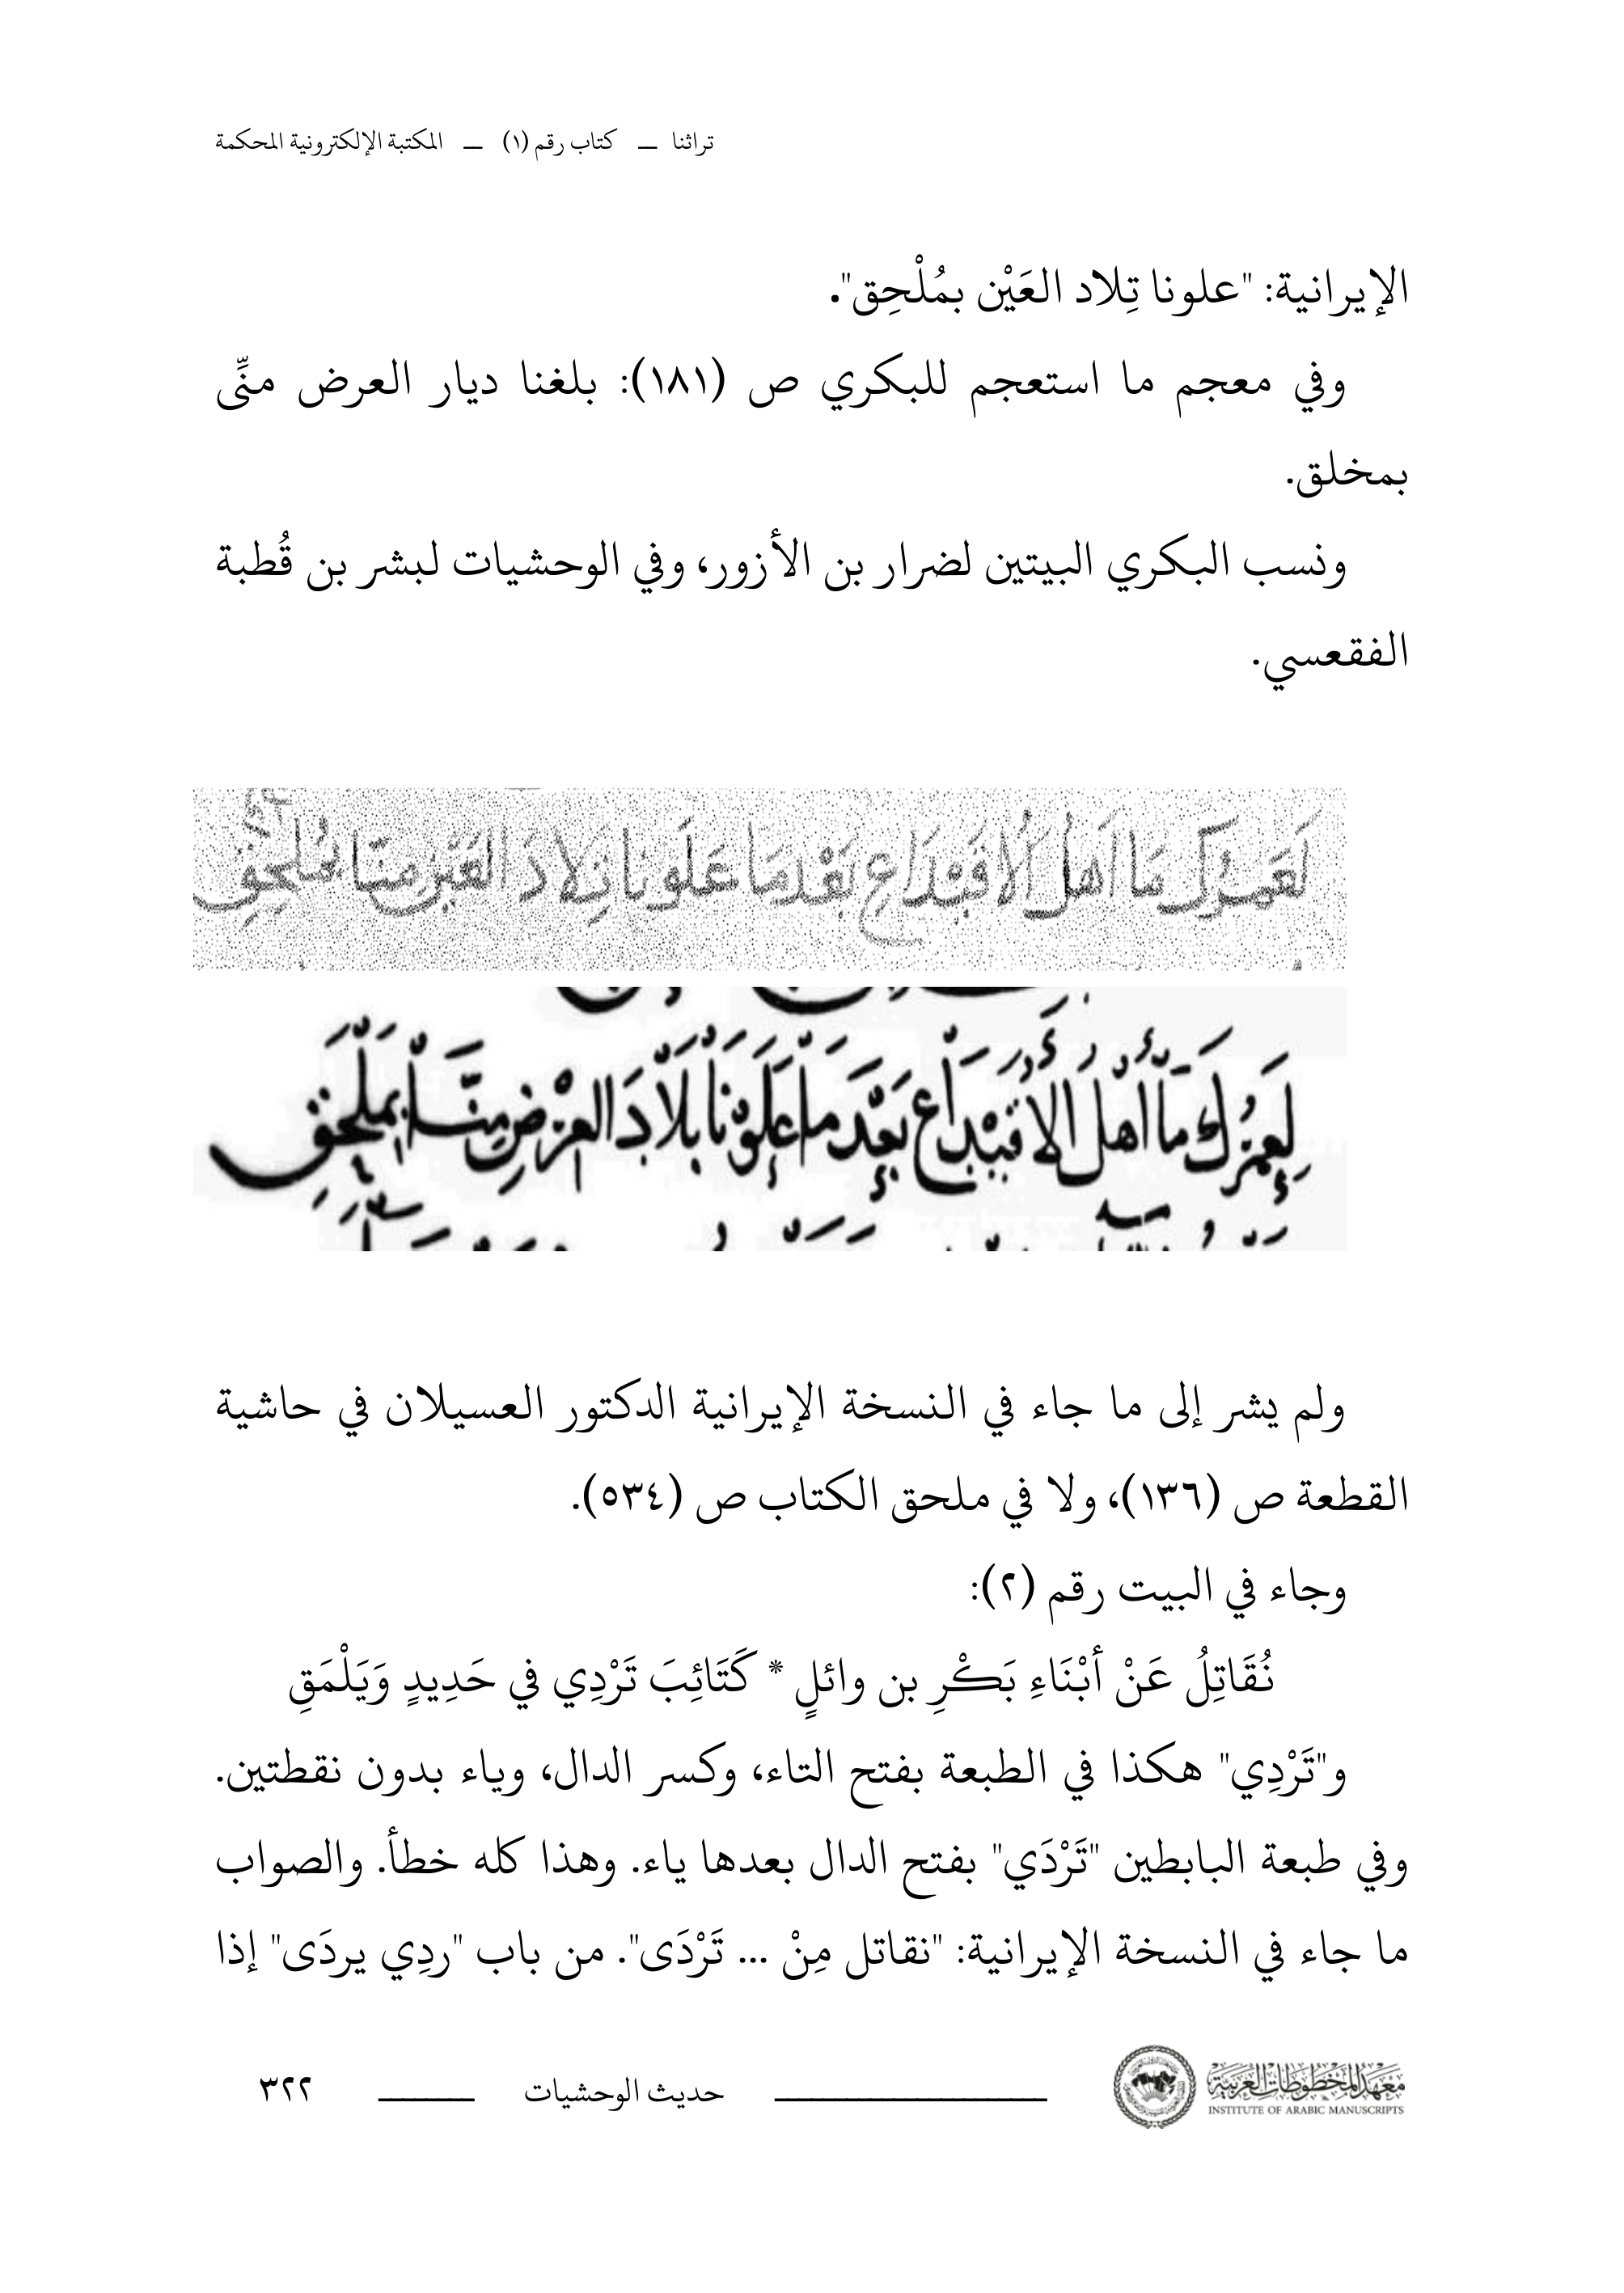 تراثنا — كتاب رقم (١) — المكتبة الإلكترونية المحكمة
الإيرانية: "علونا تِلاد العَيْن بمُلْحِق".
وفي معجم ما استعجم للبكري ص (١٨١): بلغنا ديار العرض منِّى
بمخلق.
ونسب البكري البيتين لضرار بن الأزور، وفي الوحشيات لبشر بن قُطبة
الفقعسي.
لَعَمْرُكَ مَا أَهلُ الأُقَيْدَاعِ بَعْدَمَا عَلَونَا تِلادَ العَيْنِ مِنَّا بمُلحِقِ
لعمرك ما أهل الأقيداع بعد ما علونا بلاد العرض منا بملحق
ولم يشر إلى ما جاء في النسخة الإيرانية الدكتور العسيلان في حاشية
القطعة ص (١٣٦)، ولا في ملحق الكتاب ص (٥٣٤).
وجاء في البيت رقم (٢):
نُقَاتِلُ عَنْ أبْنَاءِ بَكْرِ بن وائلٍ * كَتَائِبَ تَرْدِي في حَدِيدٍ وَيَلْمَقِ
و"تَرْدِي" هكذا في الطبعة بفتح التاء، وكسر الدال، وياء بدون نقطتين.
وفي طبعة البابطين "تَرْدَي" بفتح الدال بعدها ياء. وهذا كله خطأ. والصواب
ما جاء في النسخة الإيرانية: "نقاتل مِنْ ... تَرْدَى". من باب "ردِي يردَى" إذا
معهد المخطوطات العربية
INSTITUTE OF ARABIC MANUSCRIPTS
حديث الوحشيات
٣٢٢